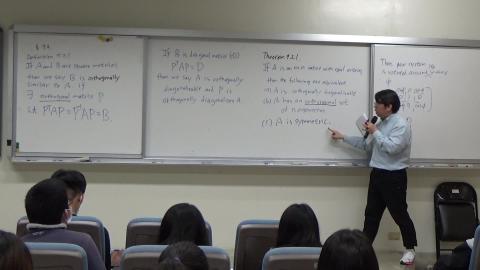 Definition
If A and B are square matrices,
then we say B is orthogonally
similar to A if
∃ orthogonal matrix P
s.t. PᵀAP = P⁻¹AP = B.
If B is diagonal matrix (D)
PᵀAP = D
then we say A is orthogonally
diagonalizable and P is
orthogonally diagonalizes A
Theorem
If A is an n×n matrix with real entries
then the following are equivalent
(a) A is orthogonally diagonalizable
(b) A has an orthonormal set
of n eigenvectors
(c) A is symmetric.
is rotated around y-axis